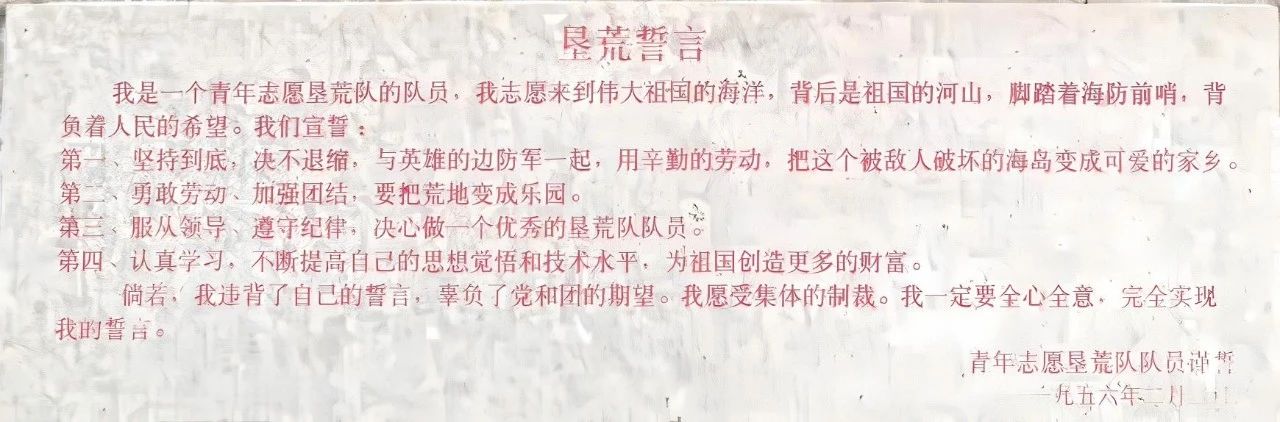 垦荒誓言
我是一个青年志愿垦荒队的队员，我志愿来到伟大祖国的海洋，背后是祖国的河山，脚踏着海防前哨，背
负着人民的希望。我们宣誓：
第一、坚持到底，决不退缩，与英雄的边防军一起，用辛勤的劳动，把这个被敌人破坏的海岛变成可爱的家乡。
第二、勇敢劳动、加强团结，要把荒地变成乐园。
第三、服从领导、遵守纪律，决心做一个优秀的垦荒队队员。
第四、认真学习，不断提高自己的思想觉悟和技术水平，为祖国创造更多的财富。
倘若，我违背了自己的誓言，辜负了党和团的期望。我愿受集体的制裁。我一定要全心全意，完全实现
我的誓言。
青年志愿垦荒队队员谨誓
一九五六年二月